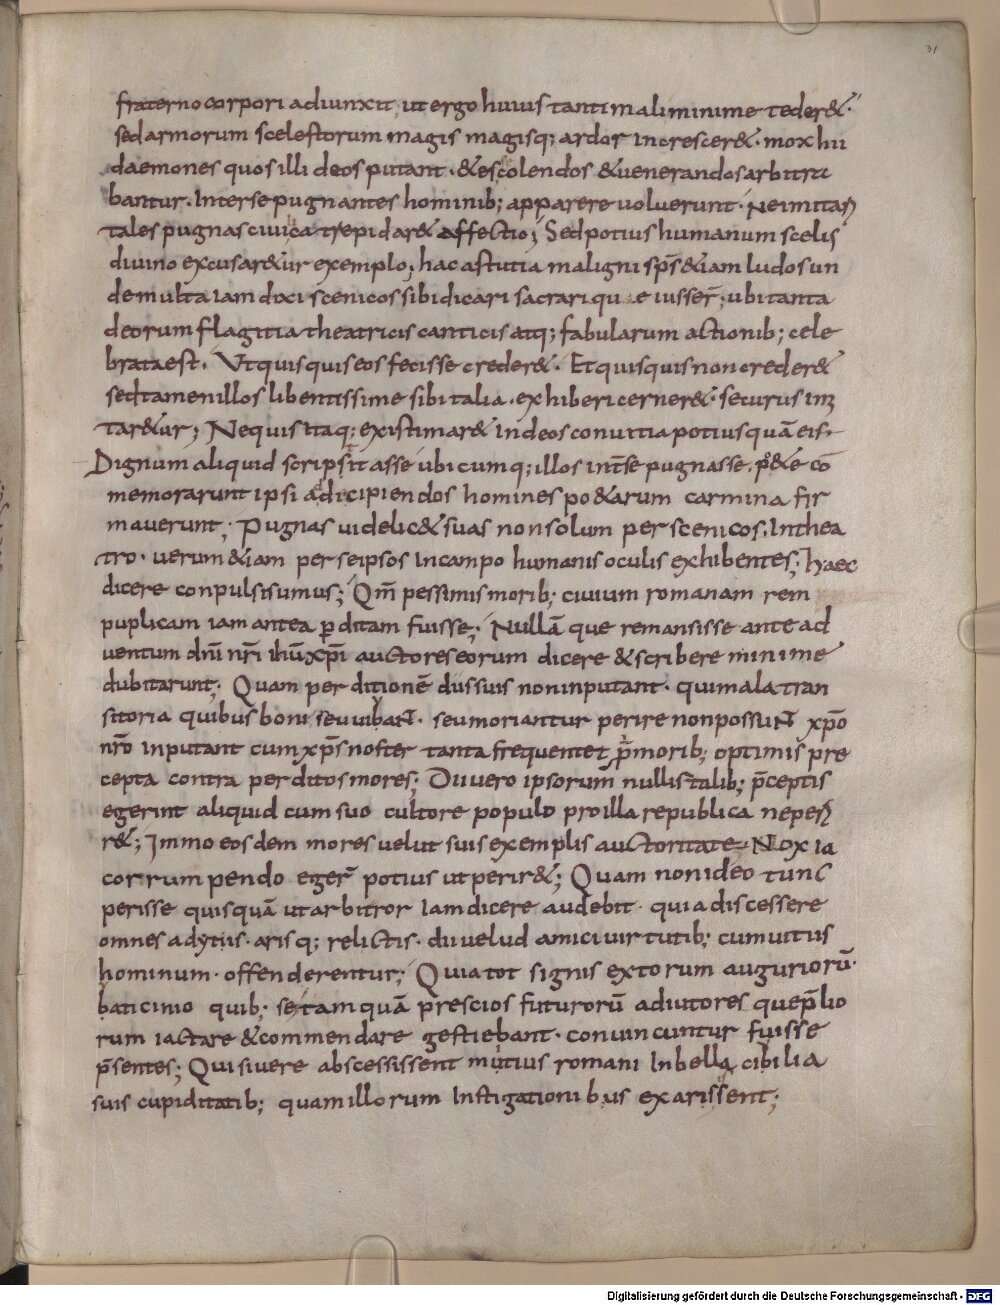 31
fraterno corpori adiunxit, ut ergo huius tanti mali minime teder&·
sed armorum scelestorum magis magisq; ardor increscer&· mox hii
daemones quos illi deos putant· & escolendos & uenerandos arbitra
bantur· Inter se pugnantes hominib; apparere uoluerunt· Ne imitan
tales pugnas ciuica trepidar& affectio; Sed potius humanum scelis
diuino excusar&ur exemplo, hac astutia maligni sp̄s &iam ludos un
de multa iam dixi scenicos sibi dicari sacrari que iusser̄; ubi tanta
deorum flagitia theatricis canticis atq; fabularum actionib; cele
brata est· Ut quisquis eos fecisse creder&· Et quisquis non creder&
sed tamen illos libentissime sibi talia· exhiberi cerner&· securus im
tar&ur; Ne quis itaq; existimar& in deos conuitia potius quā eis·
Dignum aliquid scripsitasse ubicumq; illos int̄se pugnasse· po&e cō
memorarunt ipsi adicipiendos homines po&arum carmina fir
mauerunt; Pugnas uidelic& suas non solum per scenicos· In thea
tro· uerum &iam per seipsos in campo humanis oculis exhibentes; haec
dicere conpulsi sumus; Qm̄ pessimis morib; ciuium romanam rem
puplicam iam antea ꝑditam fuisse; Nullā que remansisse ante ad
uentum dn̄i nr̄i ihū xp̄i auctores eorum dicere & scribere minime
dubitarunt; Quam perditionē diis suis non inputant· qui mala tran
sitoria quibus boni seu uibaNT· seu moriantur perire non possuNT xp̄o
nr̄o inputant cum xp̄s noster tanta frequentet p̄ morib; optimis pre
cepta contra perditos mores; Dii uero ipsorum nullis talib; p̄ceptis
egerint aliquid cum suo cultore populo pro illa republica ne per
r&; Immo eosdem mores uelut suis exemplis auctoritate Noxia
corrumpendo egeR̄ potius ut perir&; Quam non ideo tunc
perisse quisquā ut arbitror iam dicere audebit· quia discessere
omnes adytiis· arisq; relictis· dii uelud amici uirtutib; cum uitiis
hominum· offenderentur; Quia tot signis extorum auguriorū·
baticinio quib; se tamquā prescios futurorū adiutores que p̄lio
rum iactare & commendare gestiebant· conuincuntur fuisse
p̄sentes; Qui si uere abscessissent mitius romani In bella cibilia
suis cupiditatib; quam illorum Instigationibus exarissent;
Digitalisierung gefördert durch die Deutsche Forschungsgemeinschaft - DFG